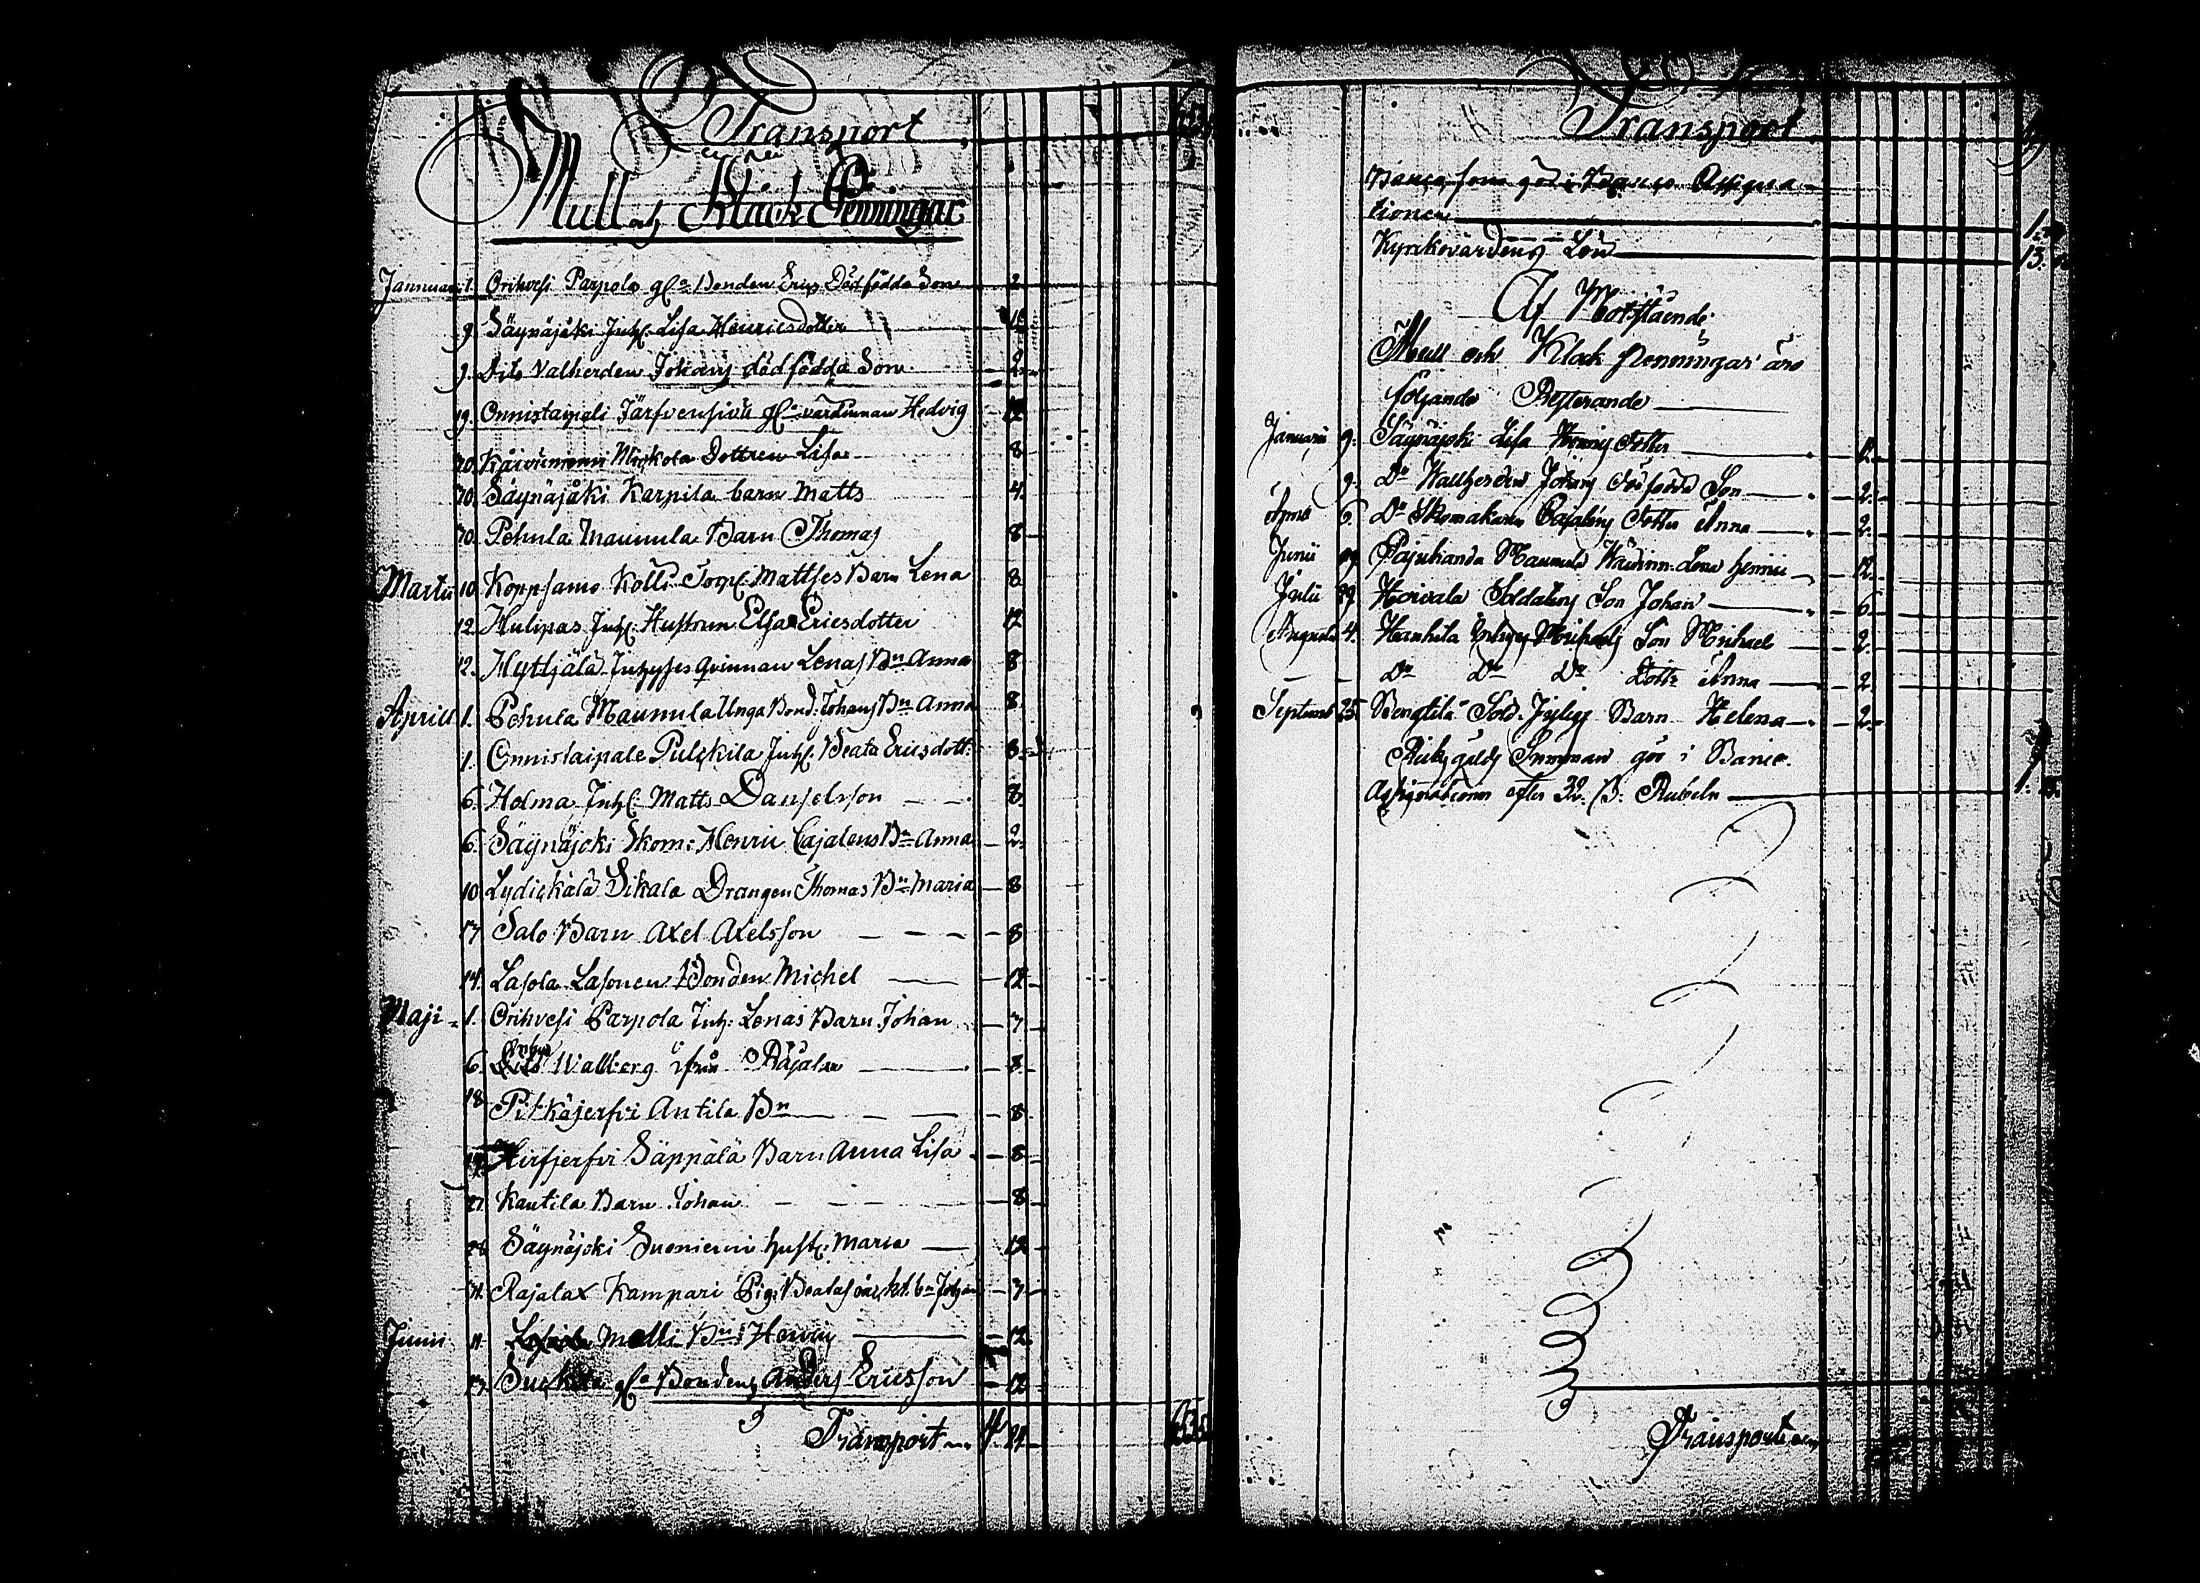 Transport
Mull och Klock Penningar
Januarii 1. Orihvesi Parpola gl:a Bonden Erics Dödfödda Son 2
9. Säynäjåki Inh: Lisa Henricsdotter
9. Dito Valherden Johans dödfödda Son 2
19. Onnistaipali Järfvensivu gl:a värdinnan Hedvig 12
20. Mickola Dottren Lisa 8
20. Säynäjåki Karpila barn Matts 4
20. Pehula Maunula Barn Thomas 8
Martii 10. Koppsamo Kolli Matthes Barn Lena 8
12. Hulipas Inh: Hustrun Elsa Ericsdotter 12
12. Hyttjälä Inhyses qvinnan Lenas B:n Anna 8
Aprill 1. Pehula Maunula Unga Bond: Johans B:n Anna 8
1. Onnistaipale Pulckila Inh: Beata Ericsdott: 8
6. Holma Inh: Matts Danielsson 8
6. Säynäjoki Skom: Henric Cajalens B:n Anna 2
10. Lydickälä Sikala Drängen Thomas B:n Maria 8
17 Salo Barn Axel Axelsson 8
14. Lasola Lasonen Bonden Michel 12
Maji 1. Orihvesi Parpola Inh: Lenas Barn Johan 7
6. Wallberg ifrån 8
18 Pitkäjerfvi Antila B:n 8
Hirfjerfvi Säppälä Barn Anna Lisa 8
Kautila Barn Johan 8
Säynäjoki Suoniemi hust: Maria 12
Rajalax Kampari Pig: Beatas oäckt. b:n Johan 7
Junii 11. Molli B:n 12
Suckila gl:a Bonden Anders Ericsson 12
Transport 4. 24
Transport
Banco som gör i Banco Assigna-
tioner 1.
Kyrkovärdens Lön 13.
Af Motstående
Mull och Klock penningar äro
följande Resterande
Januarii 9. Säynäjoki Lisa Henrics dotter
9. D:o Wallherden Johans dödfödda Son 2
6. D:o Skomakaren Cajaléns dotter Anna 2
Junii Pajukanda Maunula Wärdinn: Lena 12
Julii 29. Soldatens Son Johan 6
Augusti 4. Michaels Son Michael 2
D:o D:o D:o dotter Anna 2
Septemb 25. Bengtilä Sold. Barn Helena 2
Riksgälds Summan gör i Banco
Assignationer efter 32. ß: Rubeln 1.
Transport